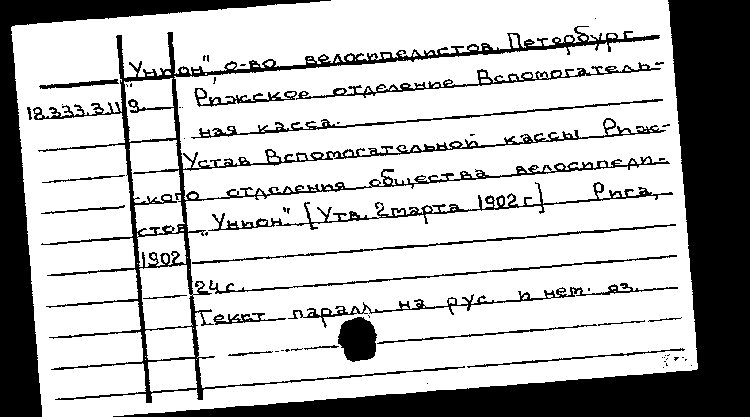 "Унион", о-во велосипедистов. Петербург
18.333.3.11 9. Рижское отделение Вспомогатель-
ная касса.
Устав Вспомогательной кассы Риж-
ского отделения общества велосипеди-
стов „Унион" [Утв. 2 марта 1902 г] Рига,
1902
24 с.
Текст паралл. на рус. и нем. яз.